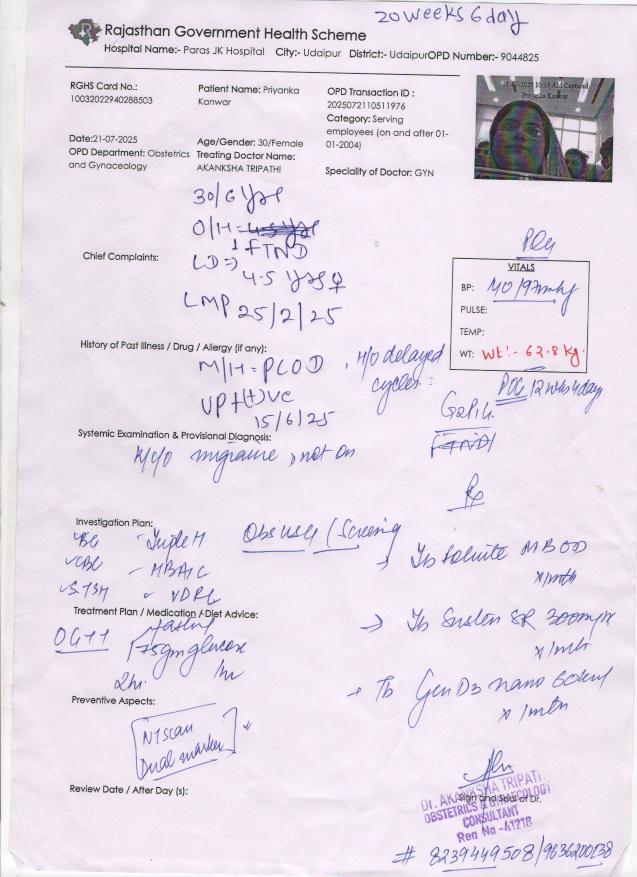 20 weeks 6 day
Rajasthan Government Health Scheme
Hospital Name:- Paras JK Hospital City:- Udaipur District:- UdaipurOPD Number:- 9044825
RGHS Card No.:
10032022940288503
Patient Name: Priyanka
Kanwar
OPD Transaction ID :
2025072110511976
Category: Serving
employees (on and after 01-
01-2004)
21-07-2025 10:49 AM Captured
Priyanka Kanwar
Date:21-07-2025
OPD Department: Obstetrics
and Gynaceology
Age/Gender: 30/Female
Treating Doctor Name:
AKANKSHA TRIPATHI
Speciality of Doctor: GYN
30/6 yrs
O/H =
1 FTND
Chief Complaints:
LD =>
4.5 yrs ♀
LMP 25/2/25
POG
VITALS
BP: /97mmhg
PULSE:
TEMP:
WT: Wt:- 62.8 kg.
History of Past Illness / Drug / Allergy (if any):
M/H = PCOD , H/O delayed
cycles
UPT (+)ve
15/6/25
POG 12 wks 4 day
G2P1L1
(FTND)
Systemic Examination & Provisional Diagnosis:
K/c/o migraine , not on
Rx
Investigation Plan:
Obs usg / Screening
BG - Triple H
CBC - HBA1C
S.TSH VDRL
Tb folinite M B OD
x/mth
Treatment Plan / Medication / Diet Advice:
OGTT fasting
75gm glucose
2hr. 1hr
→ Tb Susten SR 300mg
x/mth
→ Tb Gen D3 nano 60k
x/mth
Preventive Aspects:
NT scan
Dual marker
Review Date / After Day (s):
Sign and Seal of Dr.
Dr. AKANKSHA TRIPATHI
OBSTETRICS & GYNECOLOGY
CONSULTANT
Reg No -41218
# 8239449508/9636200138